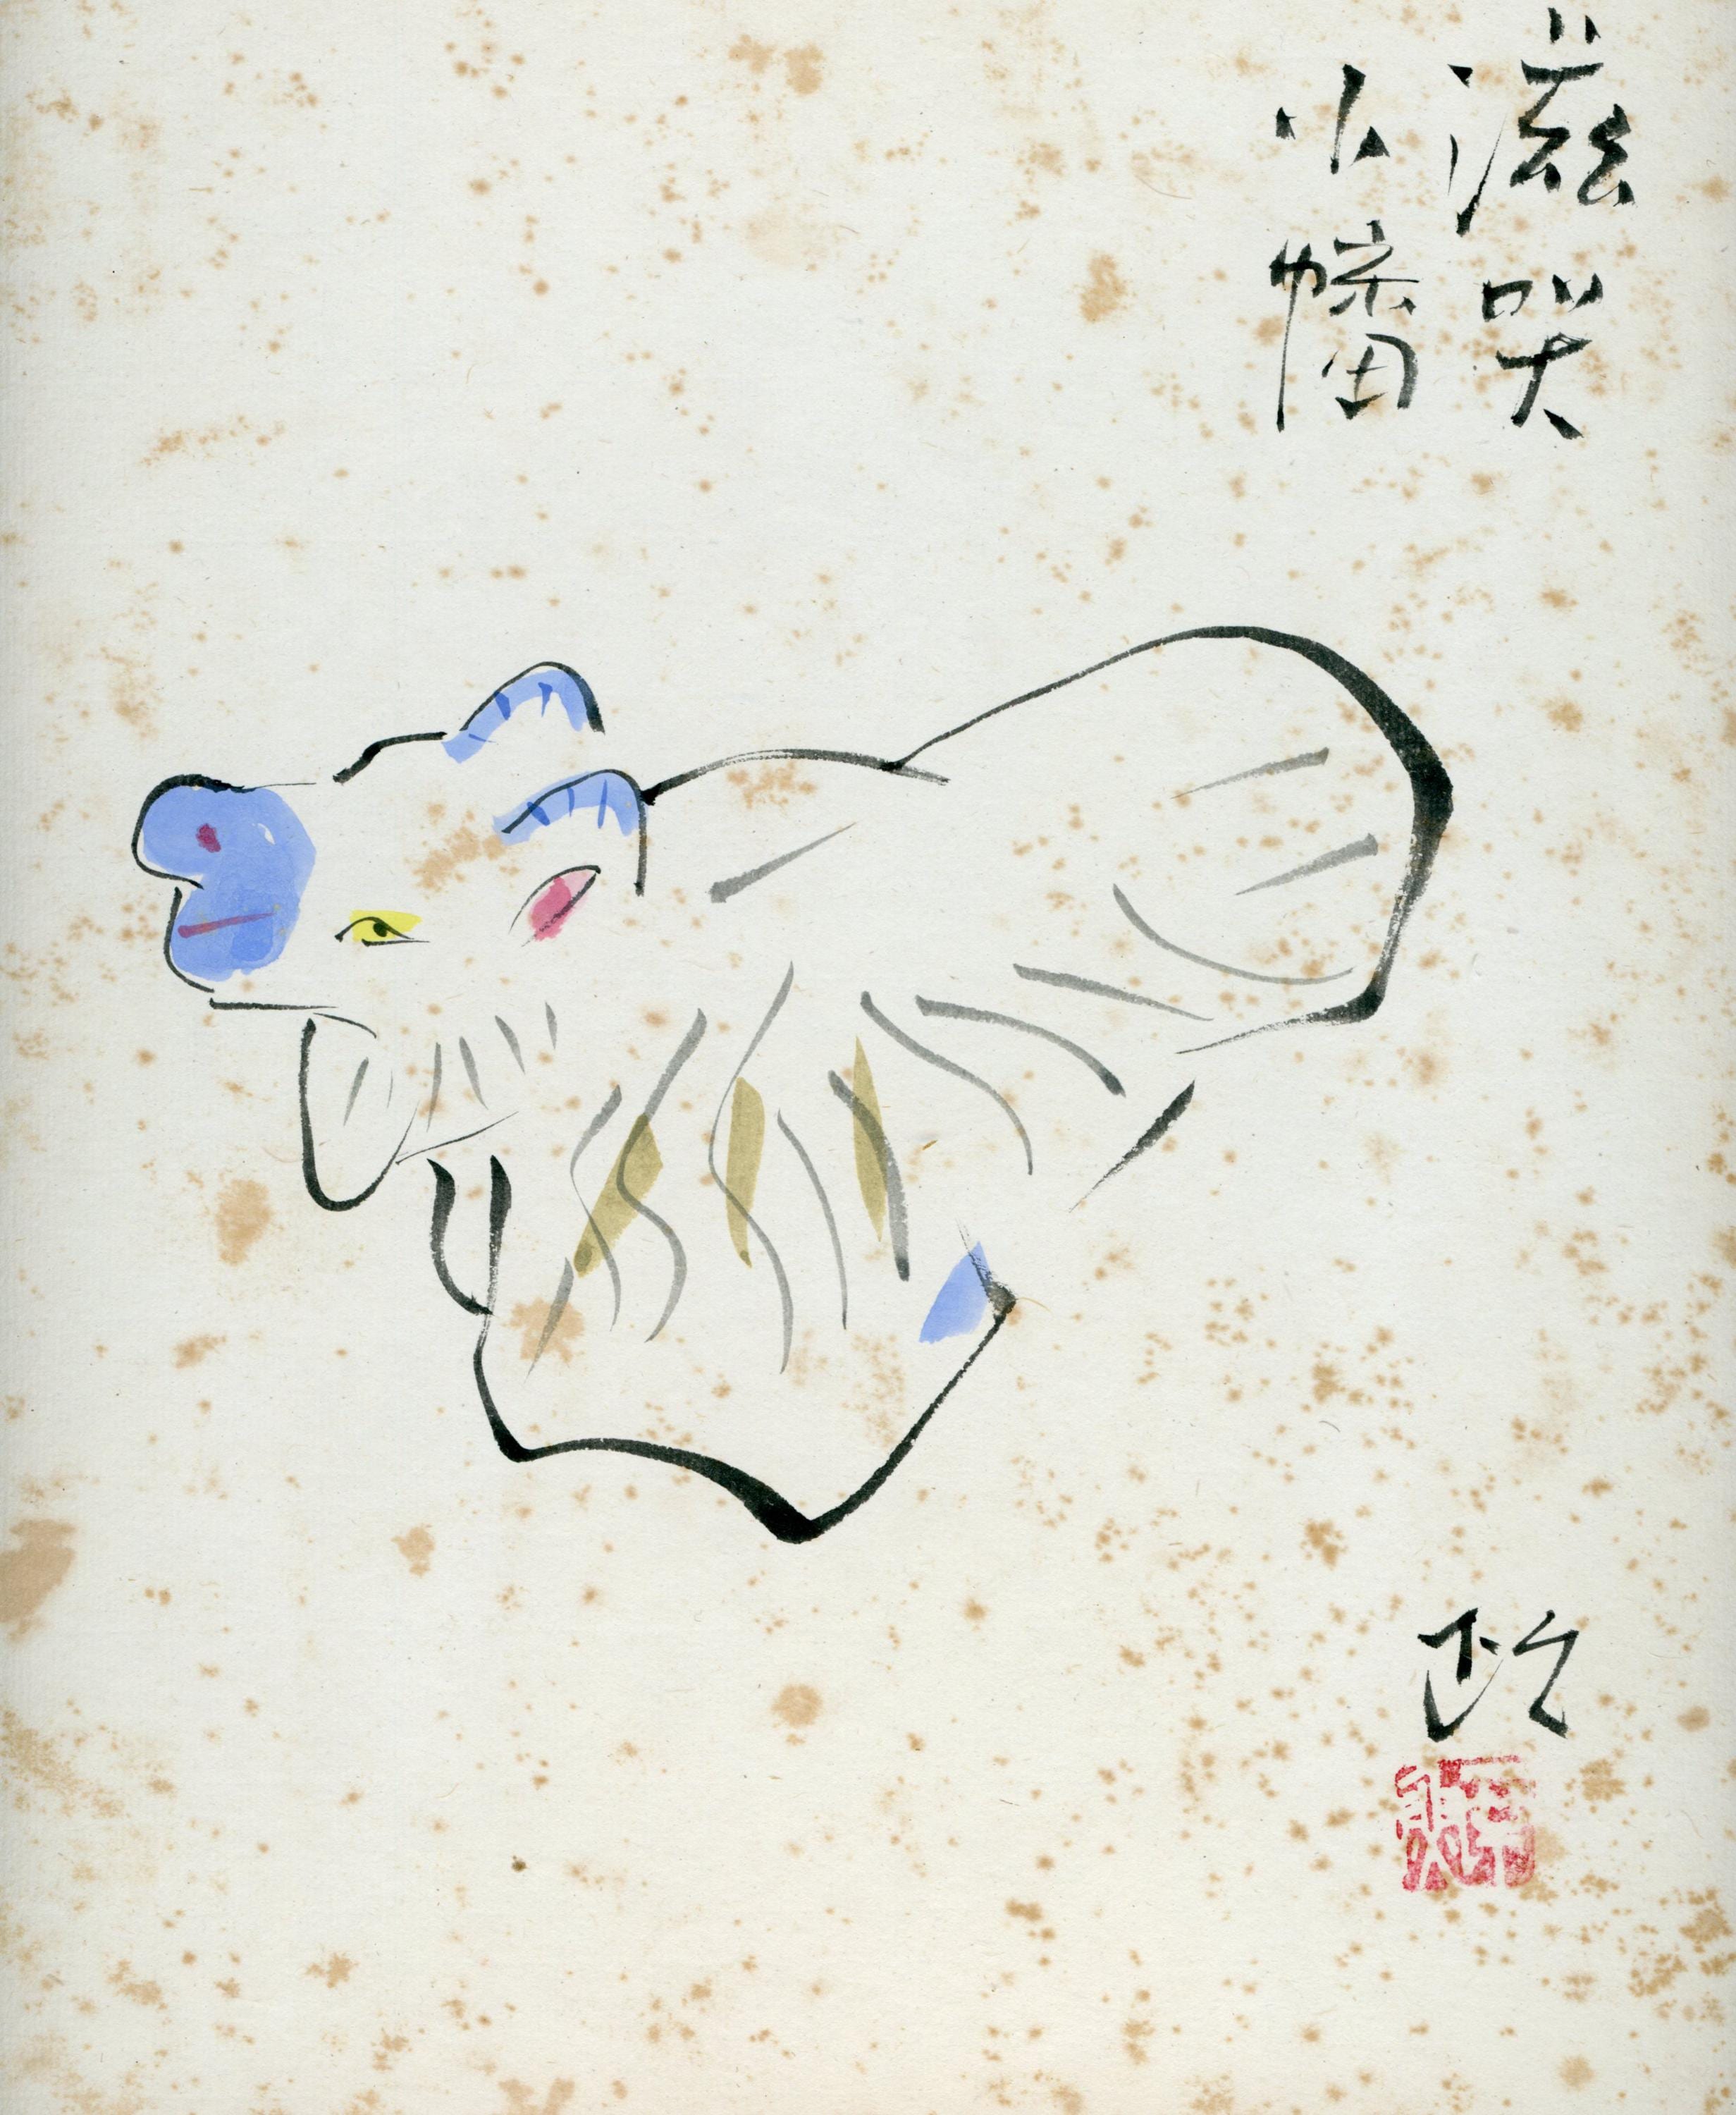 滋賀
小幡
政